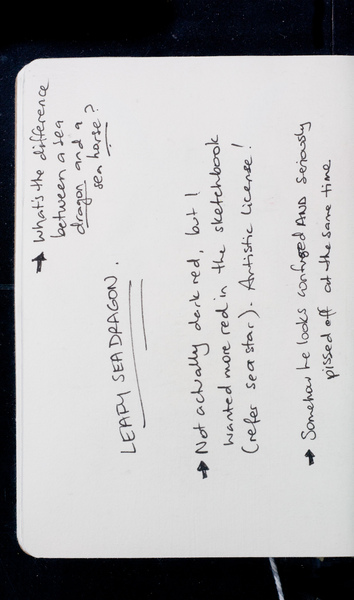 → What's the difference
between a sea
dragon and a
sea horse?
LEAFY SEADRAGON.
→ Not actually dark red, but I
wanted more red in the sketchbook
(refer sea star). Artistic License!
→ Somehow he looks confused AND seriously
pissed off at the same time